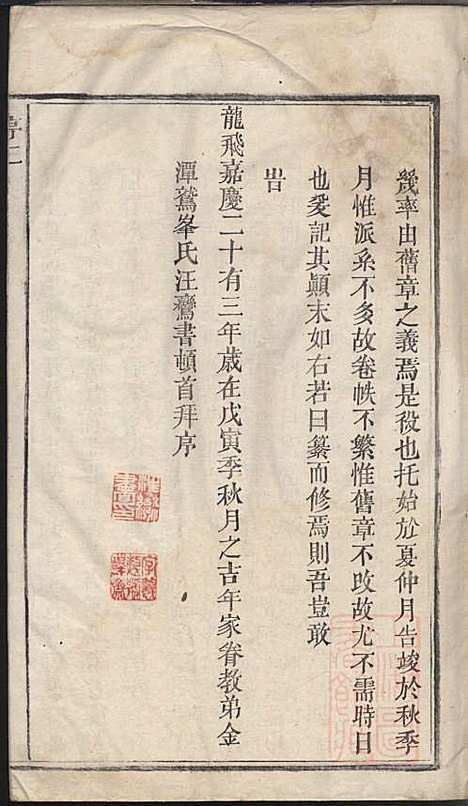 幾率由舊章之義焉是役也托始於夏仲月告竣於秋季
月惟派系不多故卷帙不繁惟舊章不改故尤不需時日
也爰記其顛末如右若曰纂而修焉則吾豈敢
旹
龍飛嘉慶二十有三年歲在戊寅季秋月之吉年家眷教弟金
潭鷲峯氏汪鸞書頓首拜序